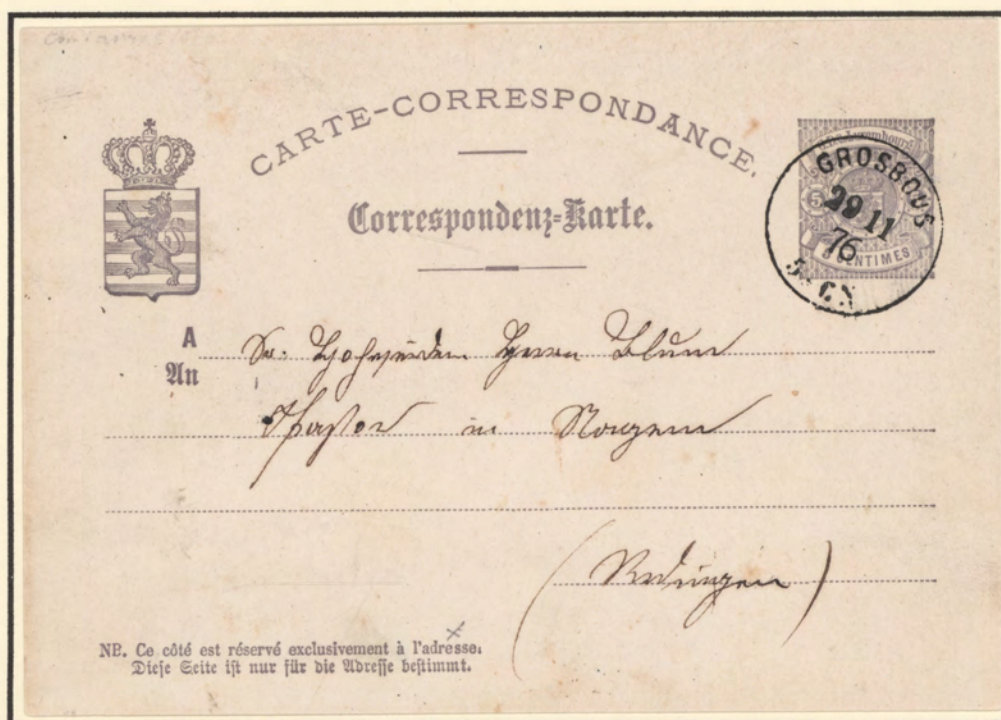 CARTE-CORRESPONDANCE.
Correspondenz-Karte.
GROSBOUS
29 11
76
5
CENTIMES
A
An
Sr. Hochwürden Herrn Blum
Pastor in
(Redingen)
NB. Ce côté est réservé exclusivement à l'adresse.
Diese Seite ist nur für die Adresse bestimmt.